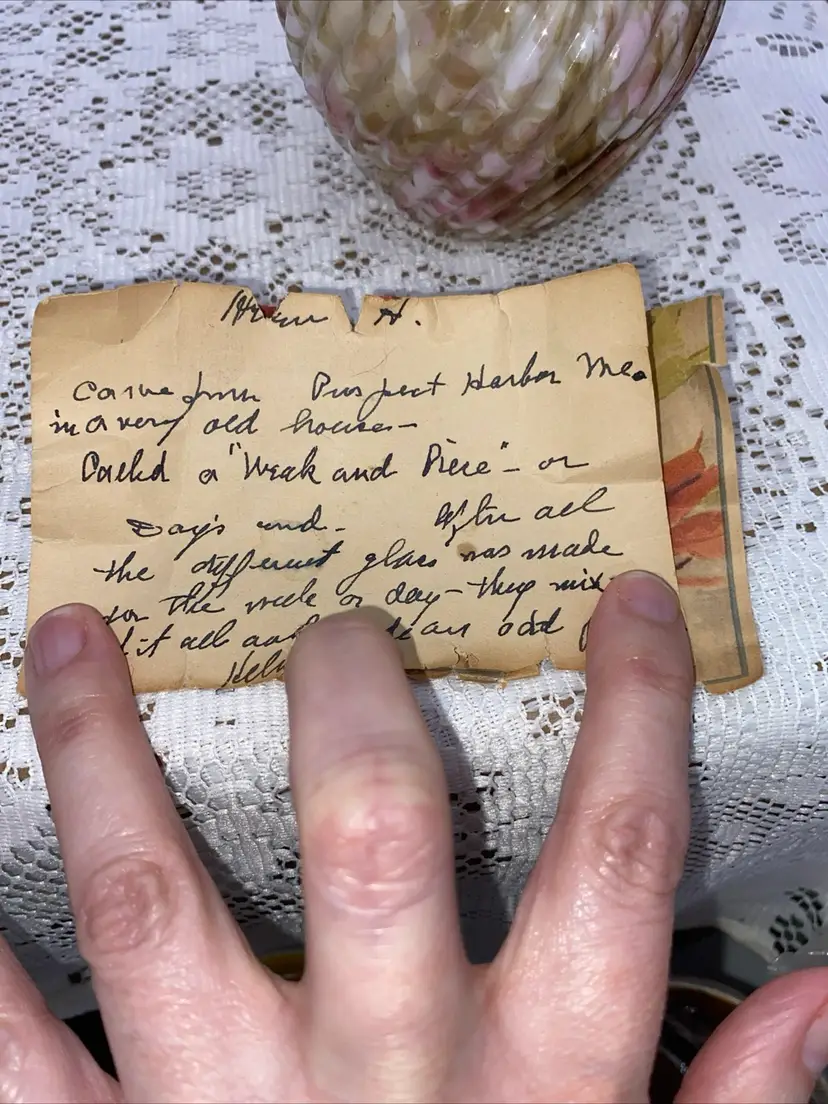 H.
Came from Prospect Harbor Me.
in a very old house—
Called a "Week end Piece"— or
Day's end— After all
the different glass was made
for the week or day— they mix
it all an an odd